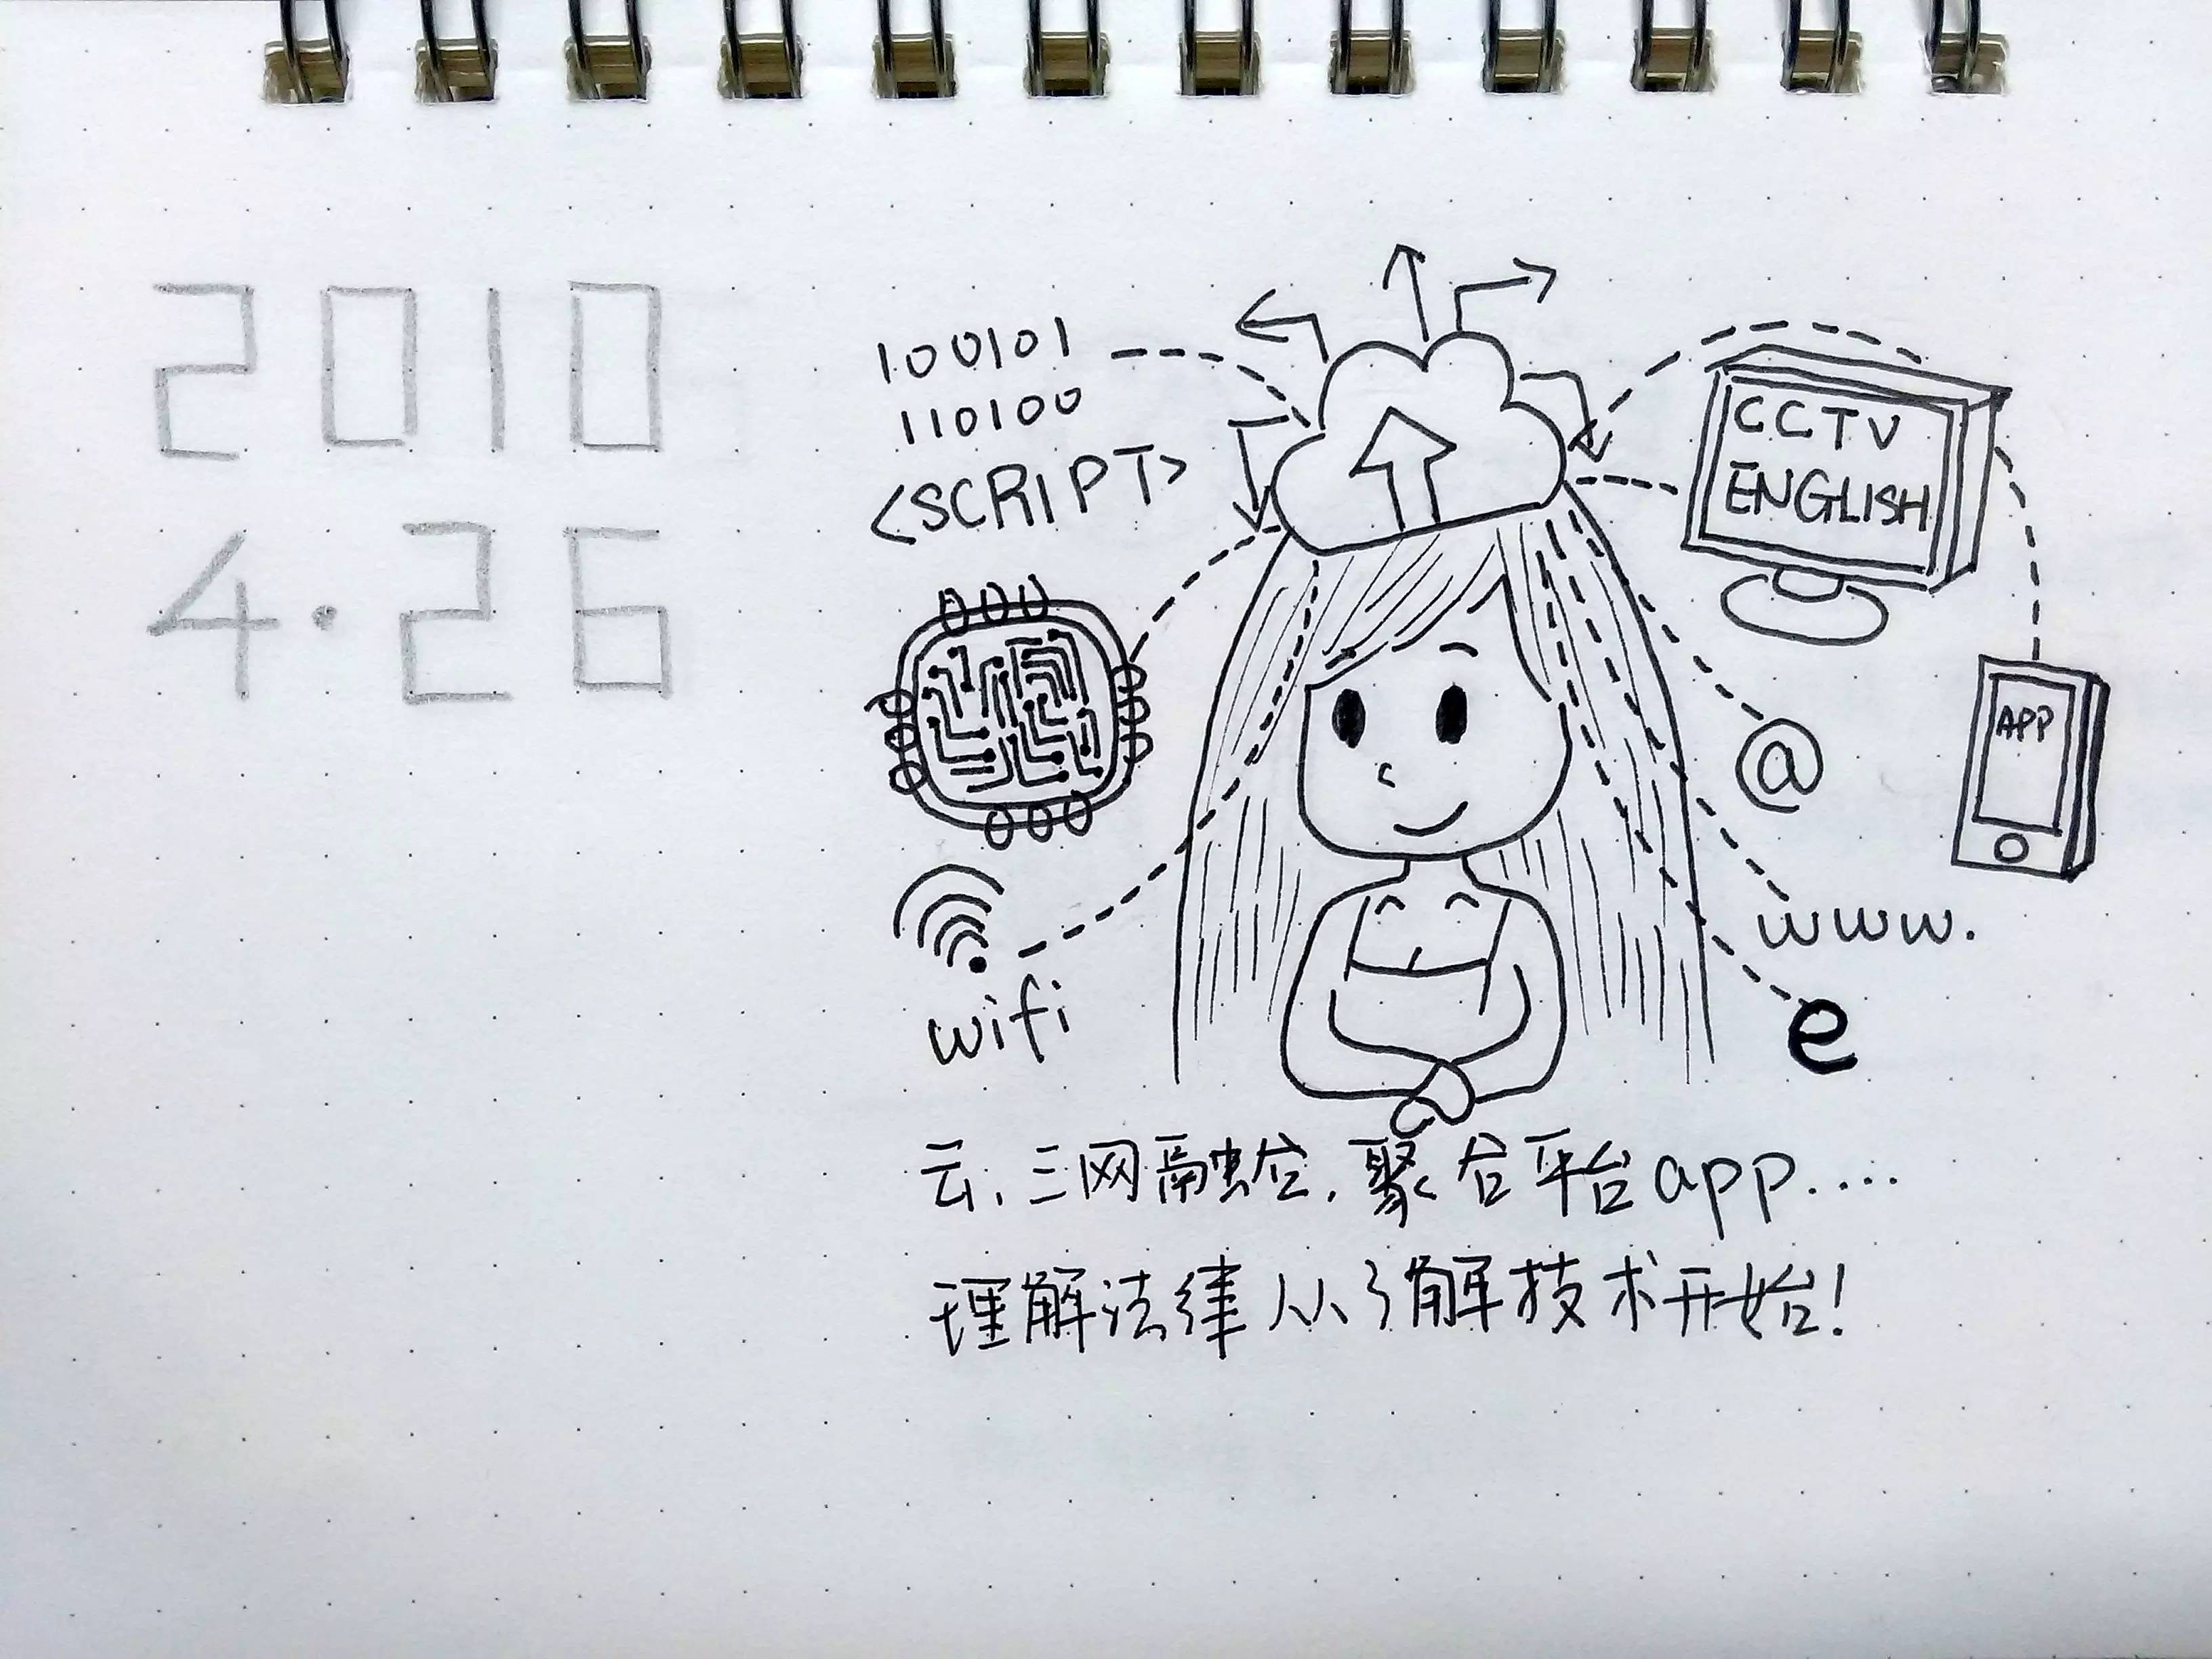 2010
4·26
100101
110100
<SCRIPT>
CCTV
ENGLISH
APP
@
www.
wifi
e
云、三网融合、聚合平台app.....
理解法律从了解技术开始!